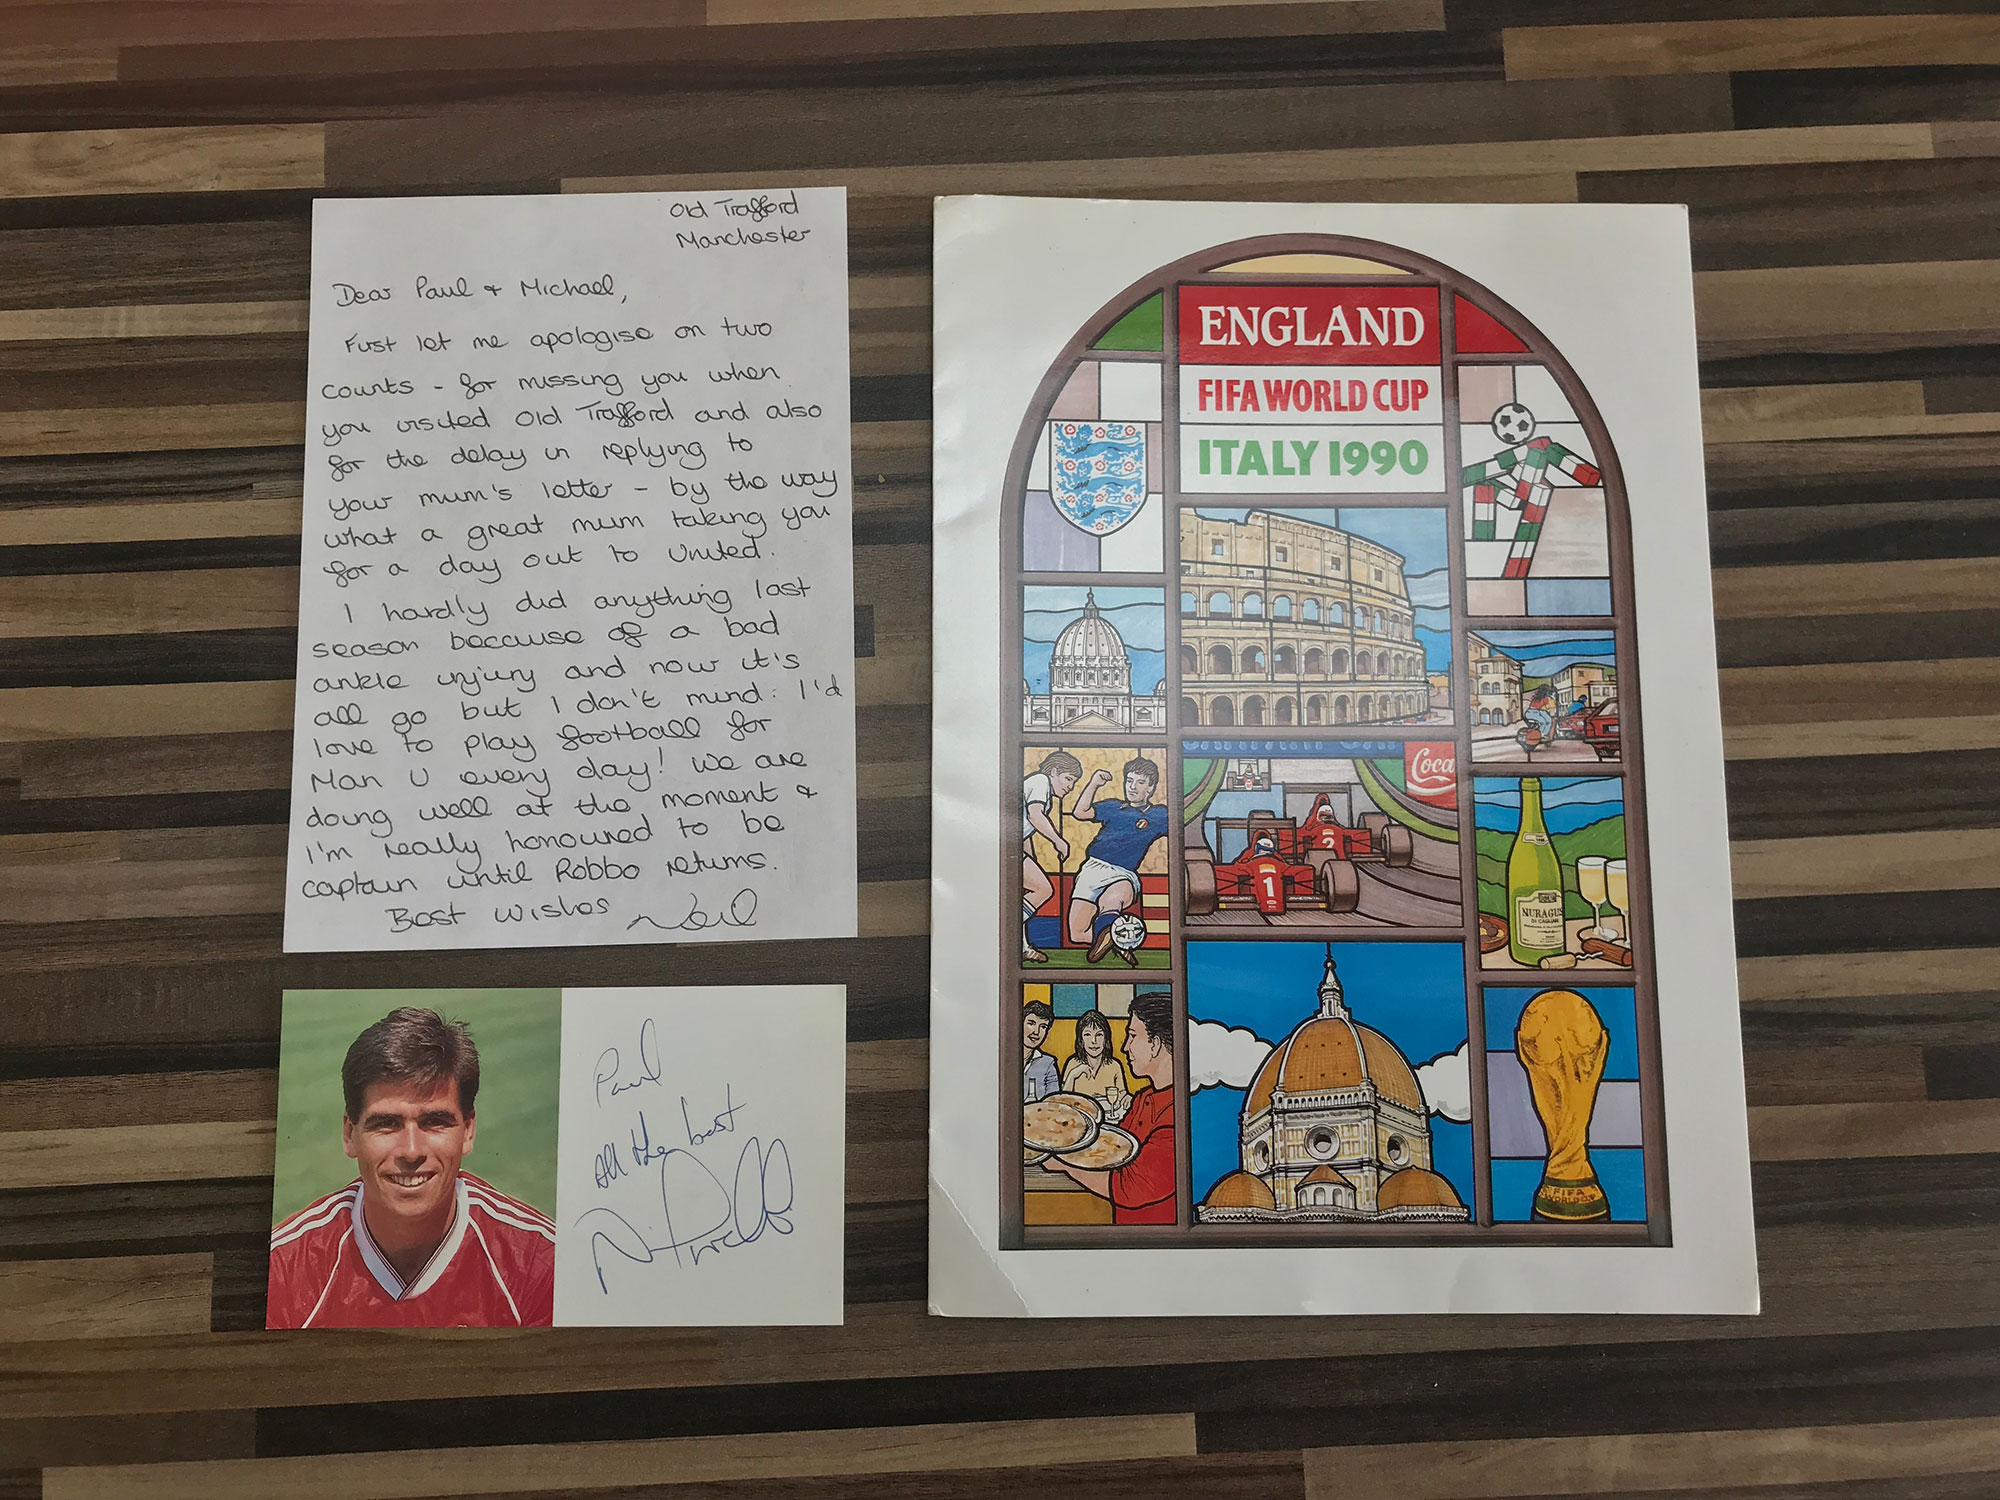 Old Trafford
Manchester
Dear Paul + Michael,
First let me apologise on two
counts - for missing you when
you visited Old Trafford and also
for the delay in replying to
your mum's letter - by the way
what a great mum taking you
for a day out to United.
I hardly did anything last
season because of a bad
ankle injury and now it's
all go but I don't mind: I'd
love to play football for
Man U every day! We are
doing well at the moment +
I'm really honoured to be
captain until Robbo returns.
Best wishes Neil
Paul
All the best
ENGLAND
FIFA WORLD CUP
ITALY 1990
Coca
2
1
NURAGUS
DI CAGLIARI
FIFA
WORLD CUP